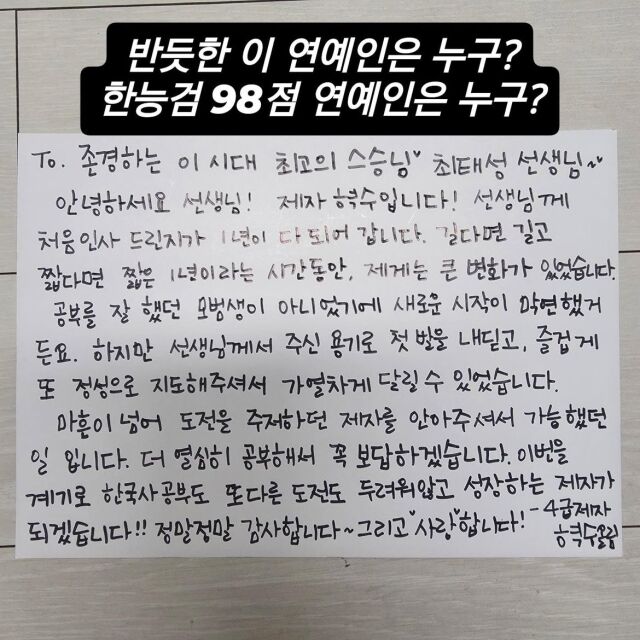 반듯한 이 연예인은 누구?
한능검 98점 연예인은 누구?
To. 존경하는 이 시대 최고의 스승님♥ 최태성 선생님~♥
안녕하세요 선생님! 제자 혁수입니다! 선생님께
처음인사 드린지가 1년이 다 되어 갑니다. 길다면 길고
짧다면 짧은 1년이라는 시간동안, 제게는 큰 변화가 있었습니다.
공부를 잘 했던 모범생이 아니었기에 새로운 시작이 막연했거
든요. 하지만 선생님께서 주신 용기로 첫 발을 내딛고, 즐겁게
또 정성으로 지도해주셔서 가열차게 달릴 수 있었습니다.
마흔이 넘어 도전을 주저하던 제자를 안아주셔서 가능했던
일 입니다. 더 열심히 공부해서 꼭 보답하겠습니다. 이번을
계기로 한국사공부도 또다른 도전도 두려워않고 성장하는 제자가
되겠습니다!! 정말정말 감사합니다~그리고 "사랑"합니다! -4급제자
혁수올림